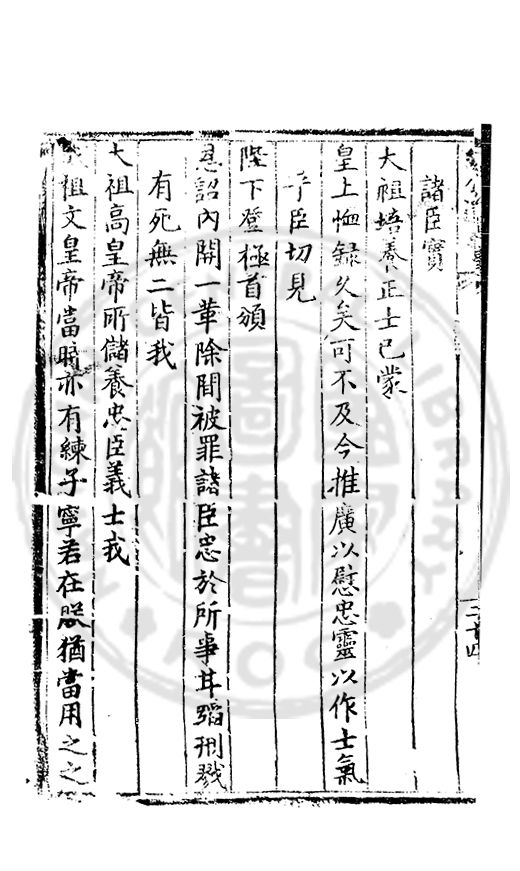 諸臣實
大祖培養正士已蒙
皇上恤録久矣可不及今推廣以慰忠靈以作士氣
乎臣切見
陛下登極首頒
恩詔內開一革除間被罪諸臣忠於所事甘蹈刑戮
有死無二皆我
大祖高皇帝所儲養忠臣義士我
祖文皇帝當時亦有練子寧若在朕猶當用之之
二十四